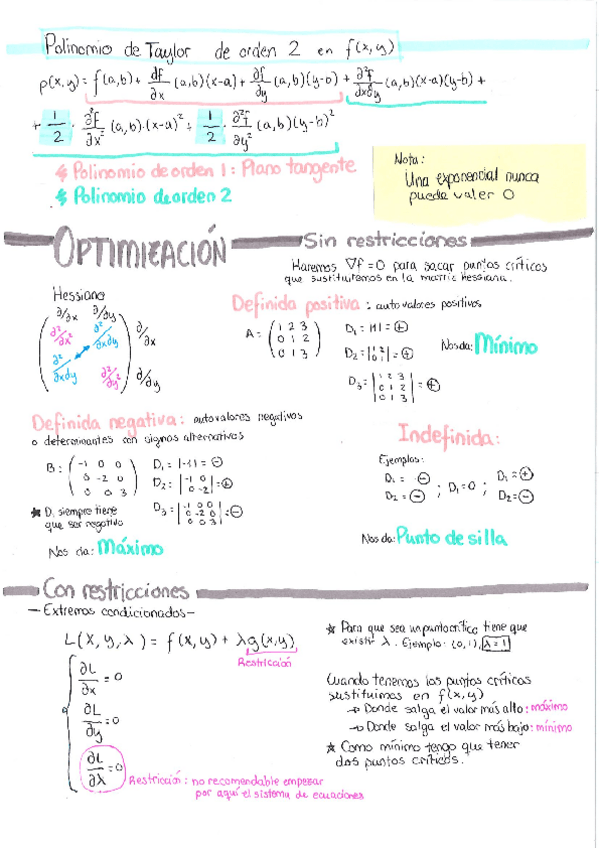 Polinomio de Taylor de orden 2 en f(x,y)
p(x,y) = f(a,b) + df/∂x (a,b)(x-a) + ∂f/∂y (a,b)(y-b) + ∂²f/∂x∂y (a,b)(x-a)(y-b) +
+ 1/2 · ∂²f/∂x² (a,b)·(x-a)² + 1/2 · ∂²f/∂y² (a,b)(y-b)²
Polinomio de orden 1: Plano tangente
Polinomio de orden 2
Nota:
Una exponencial nunca
puede valer 0
OPTIMIZACIÓN
Sin restricciones
Haremos ∇f = 0 para sacar puntos críticos
que sustituiremos en la matriz Hessiana.
Hessiana
∂/∂x ∂/∂y
∂²/∂x² ∂²/∂x∂y ∂/∂x
∂²/∂x∂y ∂²/∂y² ∂/∂y
Definida positiva: autovalores positivos
A = (1 2 3
0 1 2
0 1 3)
D₁ = |1| = ⊕
D₂ = |1 2
0 1| = ⊕
D₃ = |1 2 3
0 1 2
0 1 3| = ⊕
Nos da: Mínimo
Definida negativa: autovalores negativos
o determinantes con signos alternativos
B: (-1 0 0
0 -2 0
0 0 3)
D₁ = |-1| = ⊖
D₂: |-1 0
0 -2| = ⊕
D₃ = |-1 0 0
0 -2 0
0 0 3| = ⊖
★ D₁ siempre tiene
que ser negativo
Nos da: Máximo
Indefinida:
Ejemplos:
D₁ = ⊖
D₂ = ⊖ ; D₁ = 0 ; D₁ = ⊕
D₂ = ⊖
Nos da: Punto de silla
Con restricciones
- Extremos condicionados -
L(x,y,λ) = f(x,y) + λg(x,y)
Restricción
∂L/∂x = 0
∂L/∂y = 0
∂L/∂λ = 0
Restricción: no recomendable empezar
por aquí el sistema de ecuaciones
★ Para que sea un punto crítico tiene que
existir λ. Ejemplo: (0,1), λ=1
Cuando tenemos los puntos críticos
sustituimos en f(x,y)
→ Donde salga el valor más alto: máximo
→ Donde salga el valor más bajo: mínimo
★ Como mínimo tengo que tener
dos puntos críticos.